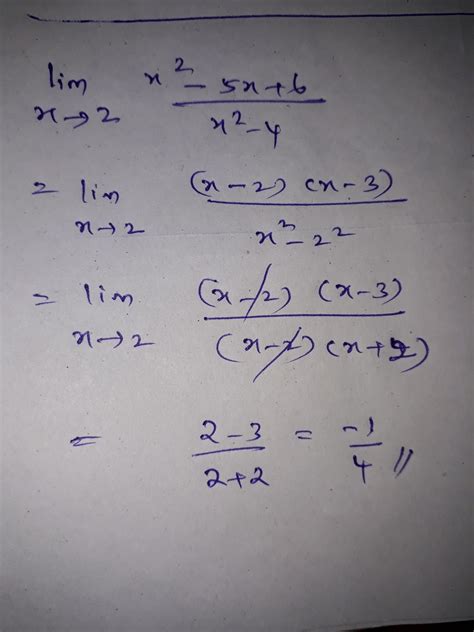 lim x→2 (x² - 5x + 6) / (x² - 4)
= lim x→2 (x-2) (x-3) / (x² - 2²)
= lim x→2 (x-2) (x-3) / (x-2) (x+2)
= (2-3) / (2+2) = -1/4 //